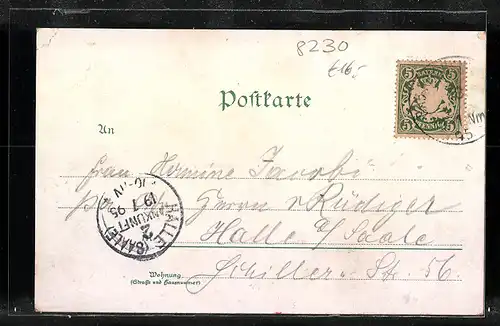 8230
€16,-
Postkarte
5 BAYERN 5
PFENNIG
Vm
95
An
Frau Hermine Jacobi
Herrn v Rüdiger
Halle a/Saale
Schiller-Str. 56.
HALLE (SAALE)
ANKUNFT
19 7 95
2
Wohnung
(Straße und Hausnummer)